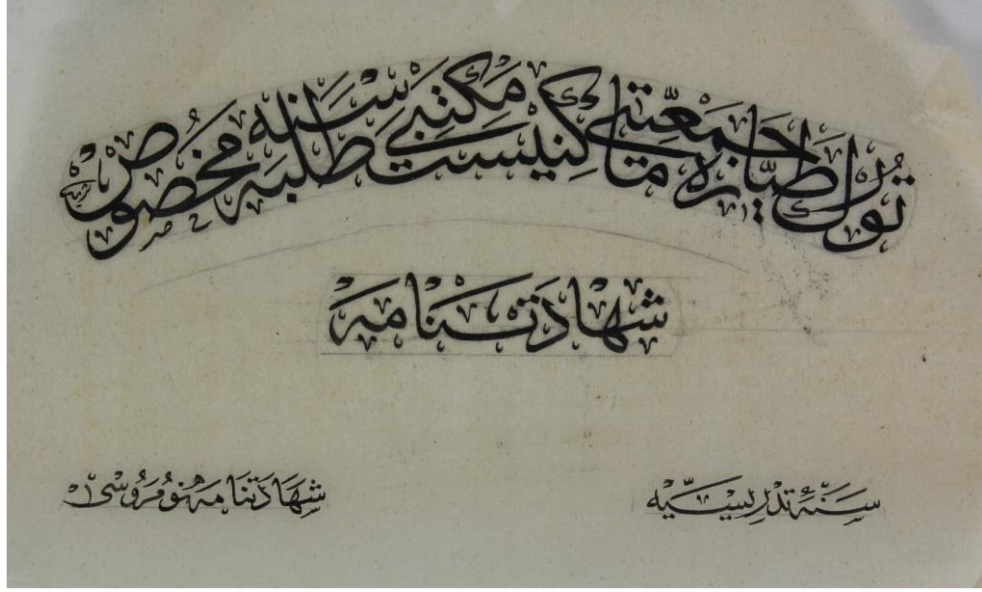 تورك طيّاره جمعيّتى ماكنيست مكتبى طلبه سنه مخصوص
شهادتنامه
سنهٔ تدريسيّه
شهادتنامه نومروسى